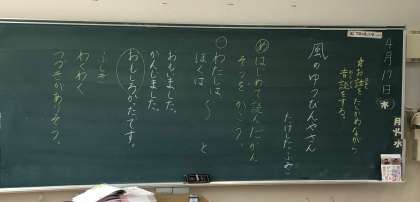 4月17日(水)
月 火 水
☆お話をたしかめながら
音読をする。
風のゆうびんやさん
たけしたふみこ
め はじめて読んだかん
そうをかこう。
一 わたしは、
ぼくは 〜 と
おもいました。
かんじました。
おもしろかったです。
ふしぎ
わくわく
つづきがありそう。